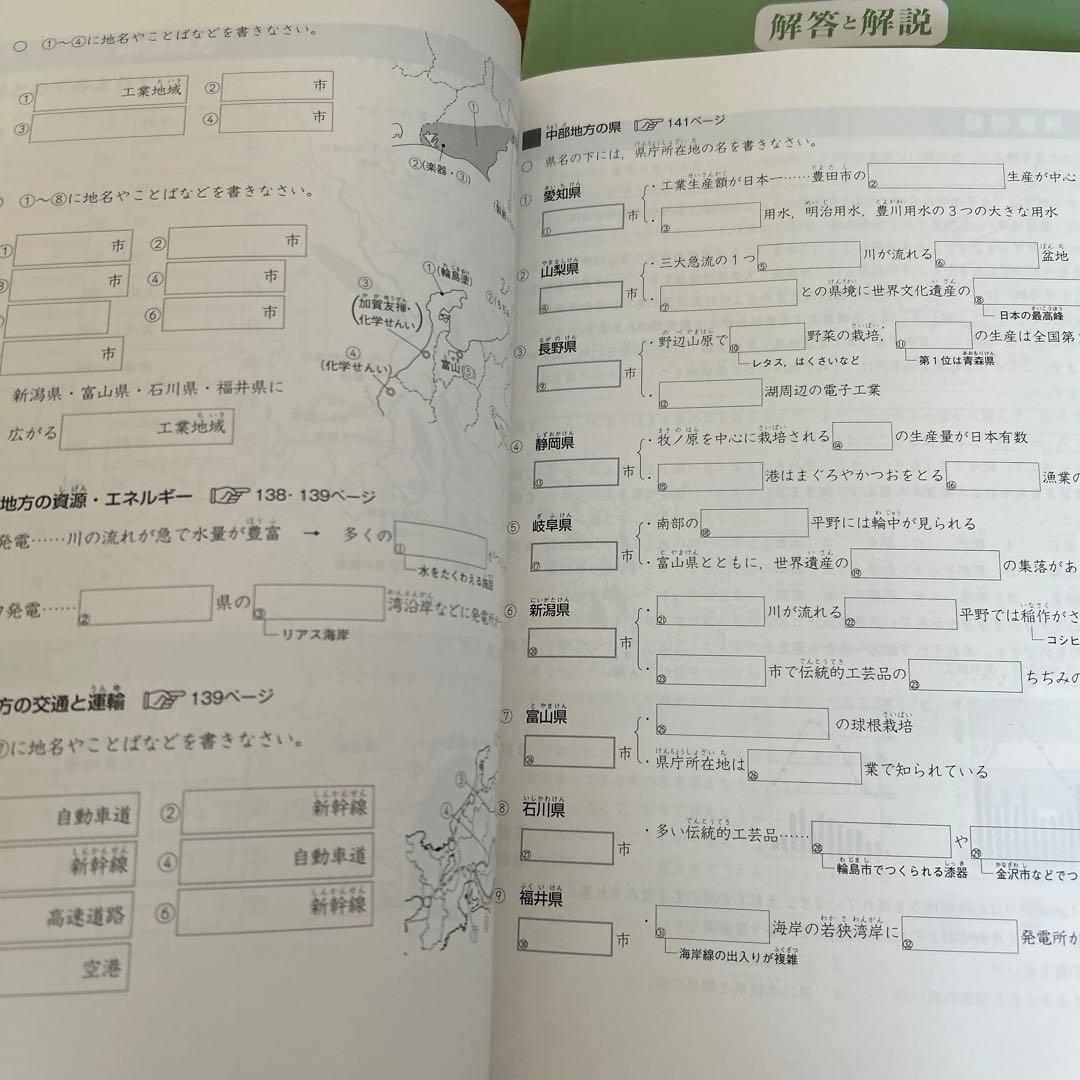 解答と解説
○ ①～④に地名やことばなどを書きなさい。
① 工業地域 ② 市
③ ④ 市
①
②(楽器・③)
①～⑧に地名やことばなどを書きなさい。
① 市 ② 市
市 ④ 市
⑥ 市
市
①(輪島塗)
③
(加賀友禅・
化学せんい)
④
(化学せんい)
富山⑤
新潟県・富山県・石川県・福井県に
広がる 工業地域
地方の資源・エネルギー 138・139ページ
発電……川の流れが急で水量が豊富 → 多くの ①
水をたくわえる施設
発電…… ② 県の ③ 湾沿岸などに発電所
リアス海岸
方の交通と運輸 139ページ
⑦に地名やことばなどを書きなさい。
自動車道 ② 新幹線
新幹線 ④ 自動車道
高速道路 ⑥ 新幹線
空港
③
④
中部地方の県 141ページ
○ 県名の下には，県庁所在地の名を書きなさい。
① 愛知県 ・工業生産額が日本一……豊田市の ② 生産が中心
① 市 ・ ③ 用水，明治用水，豊川用水の３つの大きな用水
② 山梨県 ・三大急流の１つ ⑤ 川が流れる ⑥ 盆地
④ 市 ・ ⑦ との県境に世界文化遺産の ⑧
日本の最高峰
③ 長野県 ・野辺山原で ⑩ 野菜の栽培， ⑪ の生産は全国第
レタス，はくさいなど 第１位は青森県
⑨ 市 ・ ⑫ 湖周辺の電子工業
④ 静岡県 ・牧ノ原を中心に栽培される ⑭ の生産量が日本有数
⑬ 市 ・ ⑮ 港はまぐろやかつおをとる ⑯ 漁業の
⑤ 岐阜県 ・南部の ⑱ 平野には輪中が見られる
⑰ 市 ・富山県とともに，世界遺産の ⑲ の集落があ
⑥ 新潟県 ・ ㉑ 川が流れる ㉒ 平野では稲作がさ
コシヒ
⑳ 市 ・ ㉓ 市で伝統的工芸品の ㉔ ちぢみの
⑦ 富山県 ・ ㉕ の球根栽培
㉔ 市 ・県庁所在地は ㉖ 業で知られている
⑧ 石川県 ・多い伝統的工芸品…… ㉘ や ㉙
㉗ 市 輪島市でつくられる漆器 金沢市などでつ
⑨ 福井県 ・ ㉛ 海岸の若狭湾岸に ㉜ 発電所が
㉚ 市 海岸線の出入りが複雑